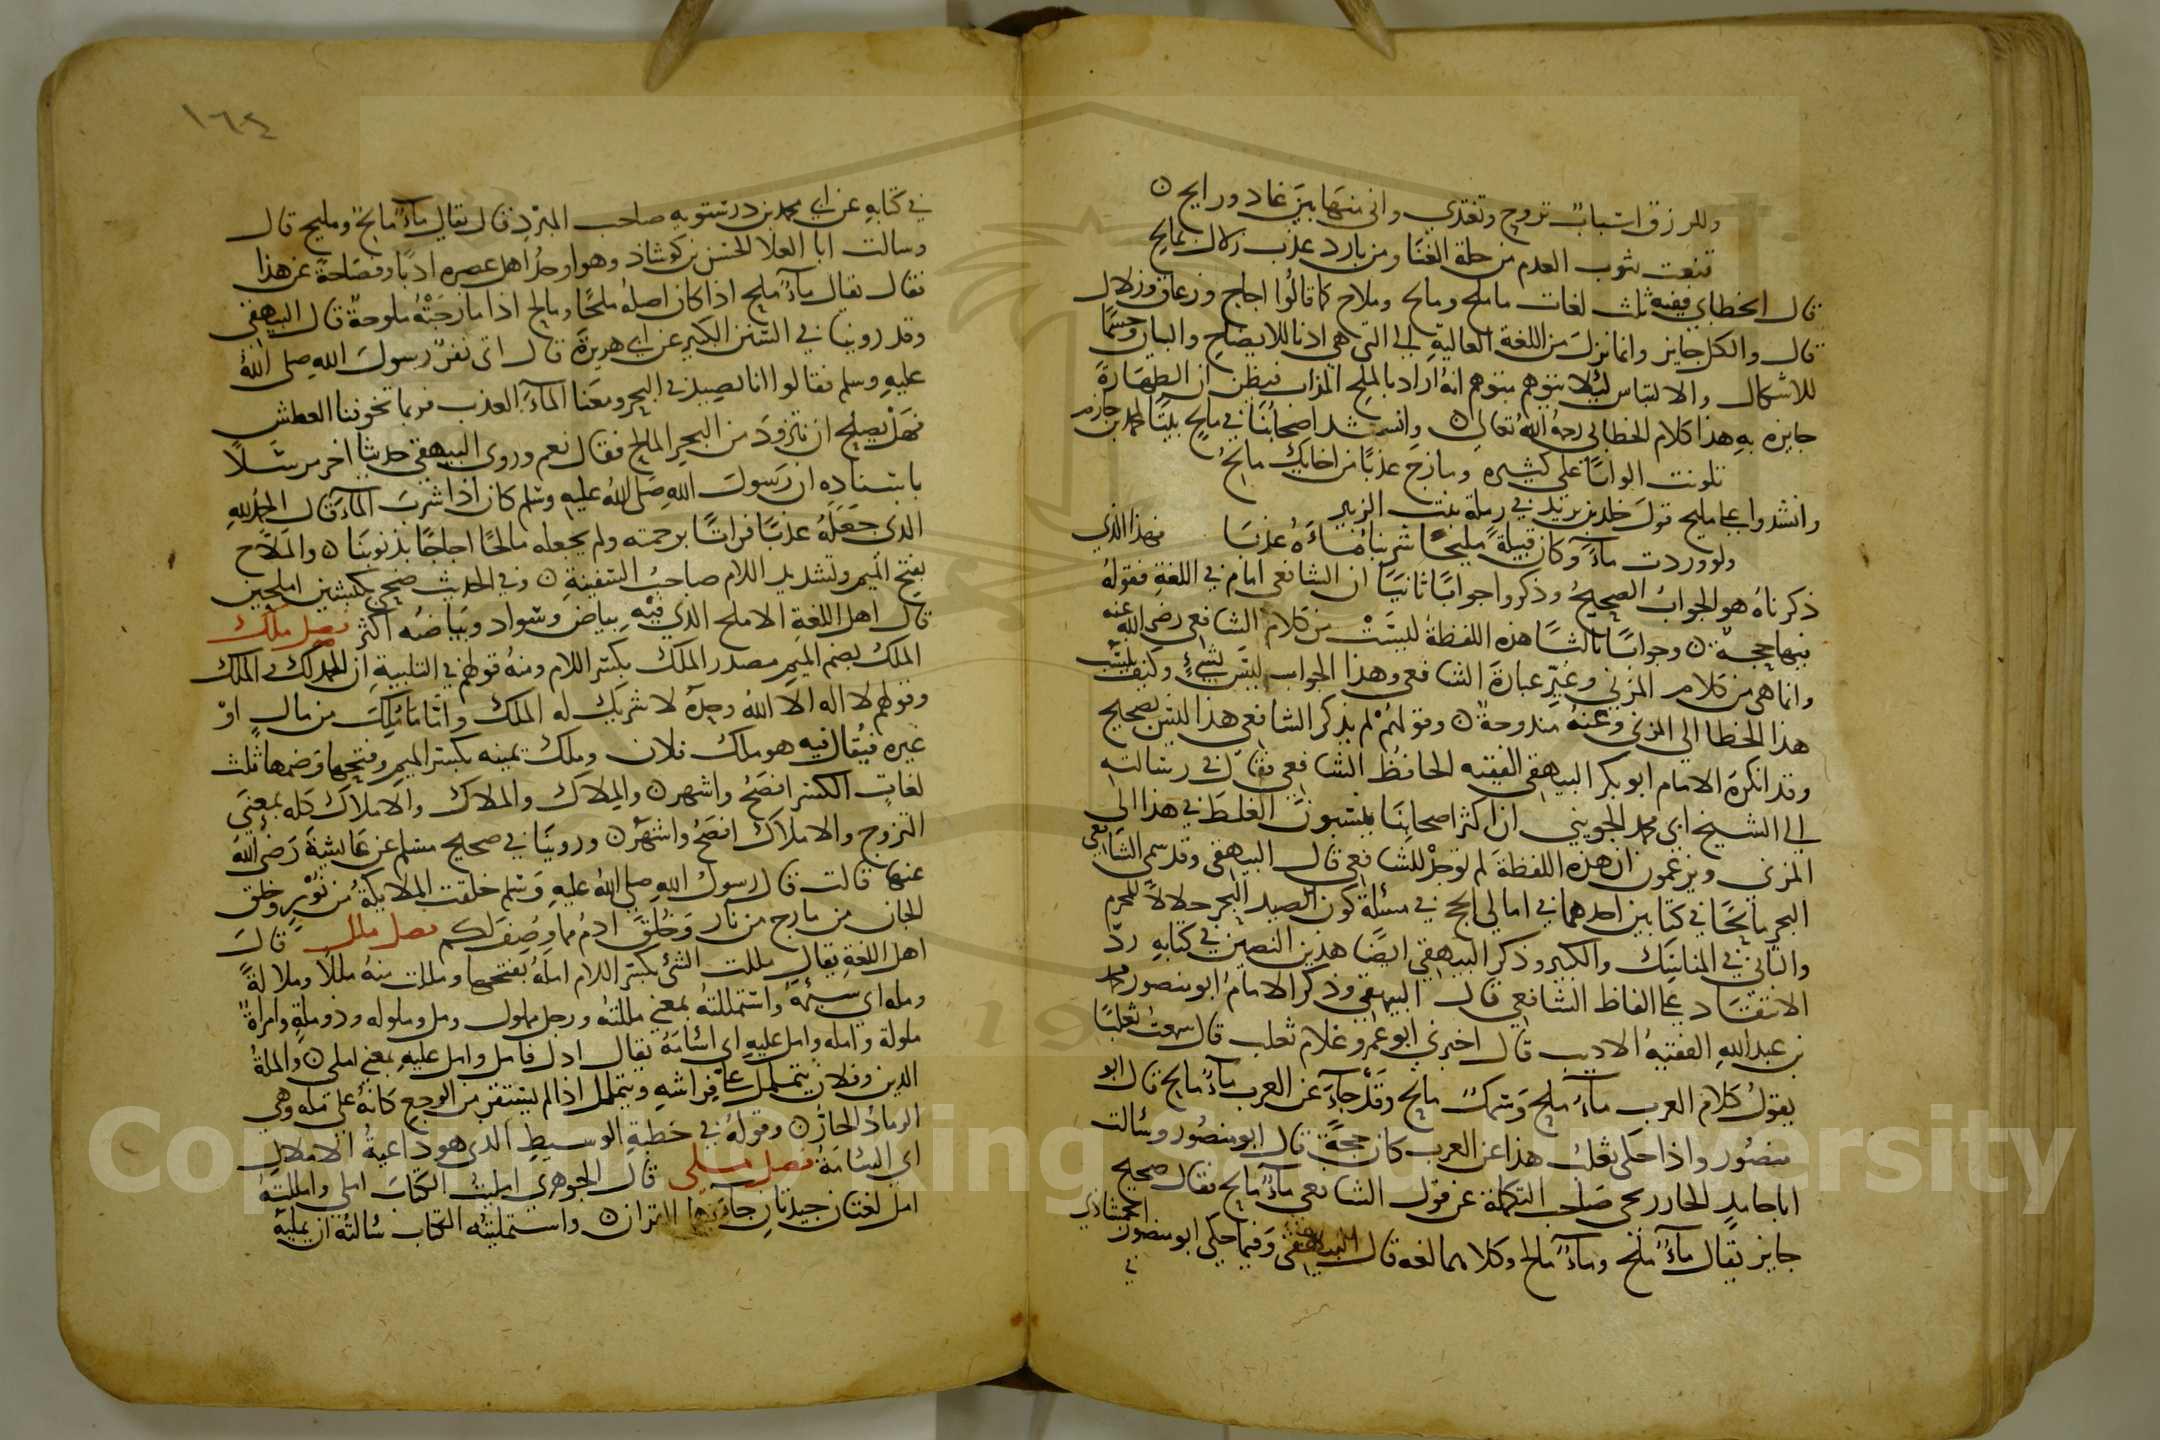 وللرزق اسباب تروح وتغتدي واني منها بين غاد ورايح ن
قنعت بثوب العدم من حلة الغنا ومن بارد عذب زلال بمالح
قال الخطابي ففيه ثلث لغات ماملح ومالح وملاح كما قالوا اجاج وزعاق وزلال
قال والكل جايز وانما نزل من اللغة العالية الى التي هي ادنا للايضاح والبيان وحسما
للاشكال والالتباس ليلا يتوهم متوهم انه اراد بالملح المذاب فيظن ان الطهارة
جايزه به هذا كلام الخطابي رحمه الله تعالى ن وانشد اصحابنا في مالح بيتا لمحمد بن حازم
تلونت الوانا علي كثيره ومازج عذبا من اخايك مالح
وانشدوا على مليح قول خلد بن يزيد في رملة بنت الزبير
ولو وردت ماء وكان قبيلة مليحا شربنا ماءه عذبا فهذا الذي
ذكرناه هو الجواب الصحيح وذكروا جوابا ثانيا ان الشافعي امام في اللغة فقوله
فيها حجة ن وجوابا ثالثا هذه اللفظة ليست من كلام الشافعي رضي الله عنه
وانما هي من كلام المزني وغير عبارة الشافعي وهذا الجواب ليس بشيء وكيف ينسب
هذا الخطا الي المزني وعنه مندوحة ن وقولهم لم يذكر الشافعي هذا ليس بصحيح
وقد انكره الامام ابو بكر البيهقي الفقيه الحافظ الشافعي فقال في رسالته
الى الشيخ ابي محمد الجويني ان اكثر اصحابنا ينسبون الغلط في هذا الى
المزني ويزعمون ان هذه اللفظة لم توجد للشافعي قال البيهقي وقد سمى الشافعي
البحر مالحا في كتابين احدهما في امالي الحج في مسئلة كون الصيد البحر حلالا للمحرم
والثاني في المناسك الكبير وذكر البيهقي ايضا هذين النصين في كتابه رد
الانتقاد على الفاظ الشافعي قال البيهقي وذكر الامام ابو منصور محمد
بن عبدالله الفقيه الاديب قال اخبرني ابو عمرو غلام ثعلب قال سمعت ثعلبا
يقول كلام العرب ماء ملح وسمك مالح وقد جاء عن العرب ماء مالح قال ابو
منصور واذا حكى ثعلب هذا عن العرب كان حجة قال ابو منصور وسالت
ابا حامد الخارزنجي صاحب التكملة عن قول الشافعي ماء مالح فقال صحيح
جايز يقال ماء ملح وماء مالح وكلاهما لغه قال البيهقي وفيما حكى ابو منصور الحمشاذي
في
١٦٤
في كتابه عن ابي محمد بن درستويه صاحب المبرد قال يقال ماء مالح ومليح قال
وسالت ابا العلا الحسن بن كوشاذ وهو اوحد اهل عصره ادبا وفصاحة عن هذا
فقال يقال ماء ملح اذا كان اصله ملحا ومالح اذا مازجته ملوحة قال البيهقي
وقد روينا في السنن الكبير عن ابي هريرة قال اتى نفر رسول الله صلى الله
عليه وسلم فقالوا انا نصيد في البحر ومعنا الماء العذب فربما تخوفنا العطش
فهل يصلح ان نتزود من البحر المالح فقال نعم وروى البيهقي حديثا اخر مرسلا
باسناده ان رسول الله صلى الله عليه وسلم كان اذا شرب الماء قال الحمد لله
الذي جعله عذبا فراتا برحمته ولم يجعله مالحا اجاجا بذنوبنا ن والملاح
بفتح الميم وتشديد اللام صاحب السفينة ن وفي الحديث ضحى بكبشين املحين
قال اهل اللغة الاملح الذي فيه بياض وسواد وبياضه اكثر فصل ملك
الملك بضم الميم مصدر الملك بكسر اللام ومنه قولهم في التلبية ان الحمد لك والملك
وقولهم لا اله الا الله وحده لا شريك له الملك واما ما يملك من مال او
غيره فيقال فيه هو ملك فلان وملك يمينه بكسر الميم وفتحها وضمها ثلث
لغات الكسر افصح واشهر ن والملاك والملاك والاملاك كله بمعنى
التزوج والاملاك افصح واشهر ن وروينا في صحيح مسلم عن عايشة رضي الله
عنها قالت قال رسول الله صلى الله عليه وسلم خلقت الملايكة من نور وخلق
الجان من مارج من نار وخلق ادم مما وصف لكم فصل ملل قال
اهل اللغة يقال مللت الشئ بكسر اللام امله بفتحها ومللت منه مللا وملالة
ومله اي سئمه واستمللته بمعنى مللته ورجل ملول ومل وملوله وذو مله وامراة
ملولة وامله وامل عليه اي اسامه يقال ادل فامل وامل عليه بمعنى املى ن والملة
الدين وفلان يتململ على فراشه ويتملل اذا لم يستقر من الوجع كانه على مله وهي
الرماد الحار ن وقوله في خطبة الوسيط الذي هو داعية الاملال
اي السامة فصل ملى قال الجوهري امليت الكتاب املي وامللته
امل لغتان جيدتان جاء بهما القران ن واستمليته الكتاب سالته ان يمليه